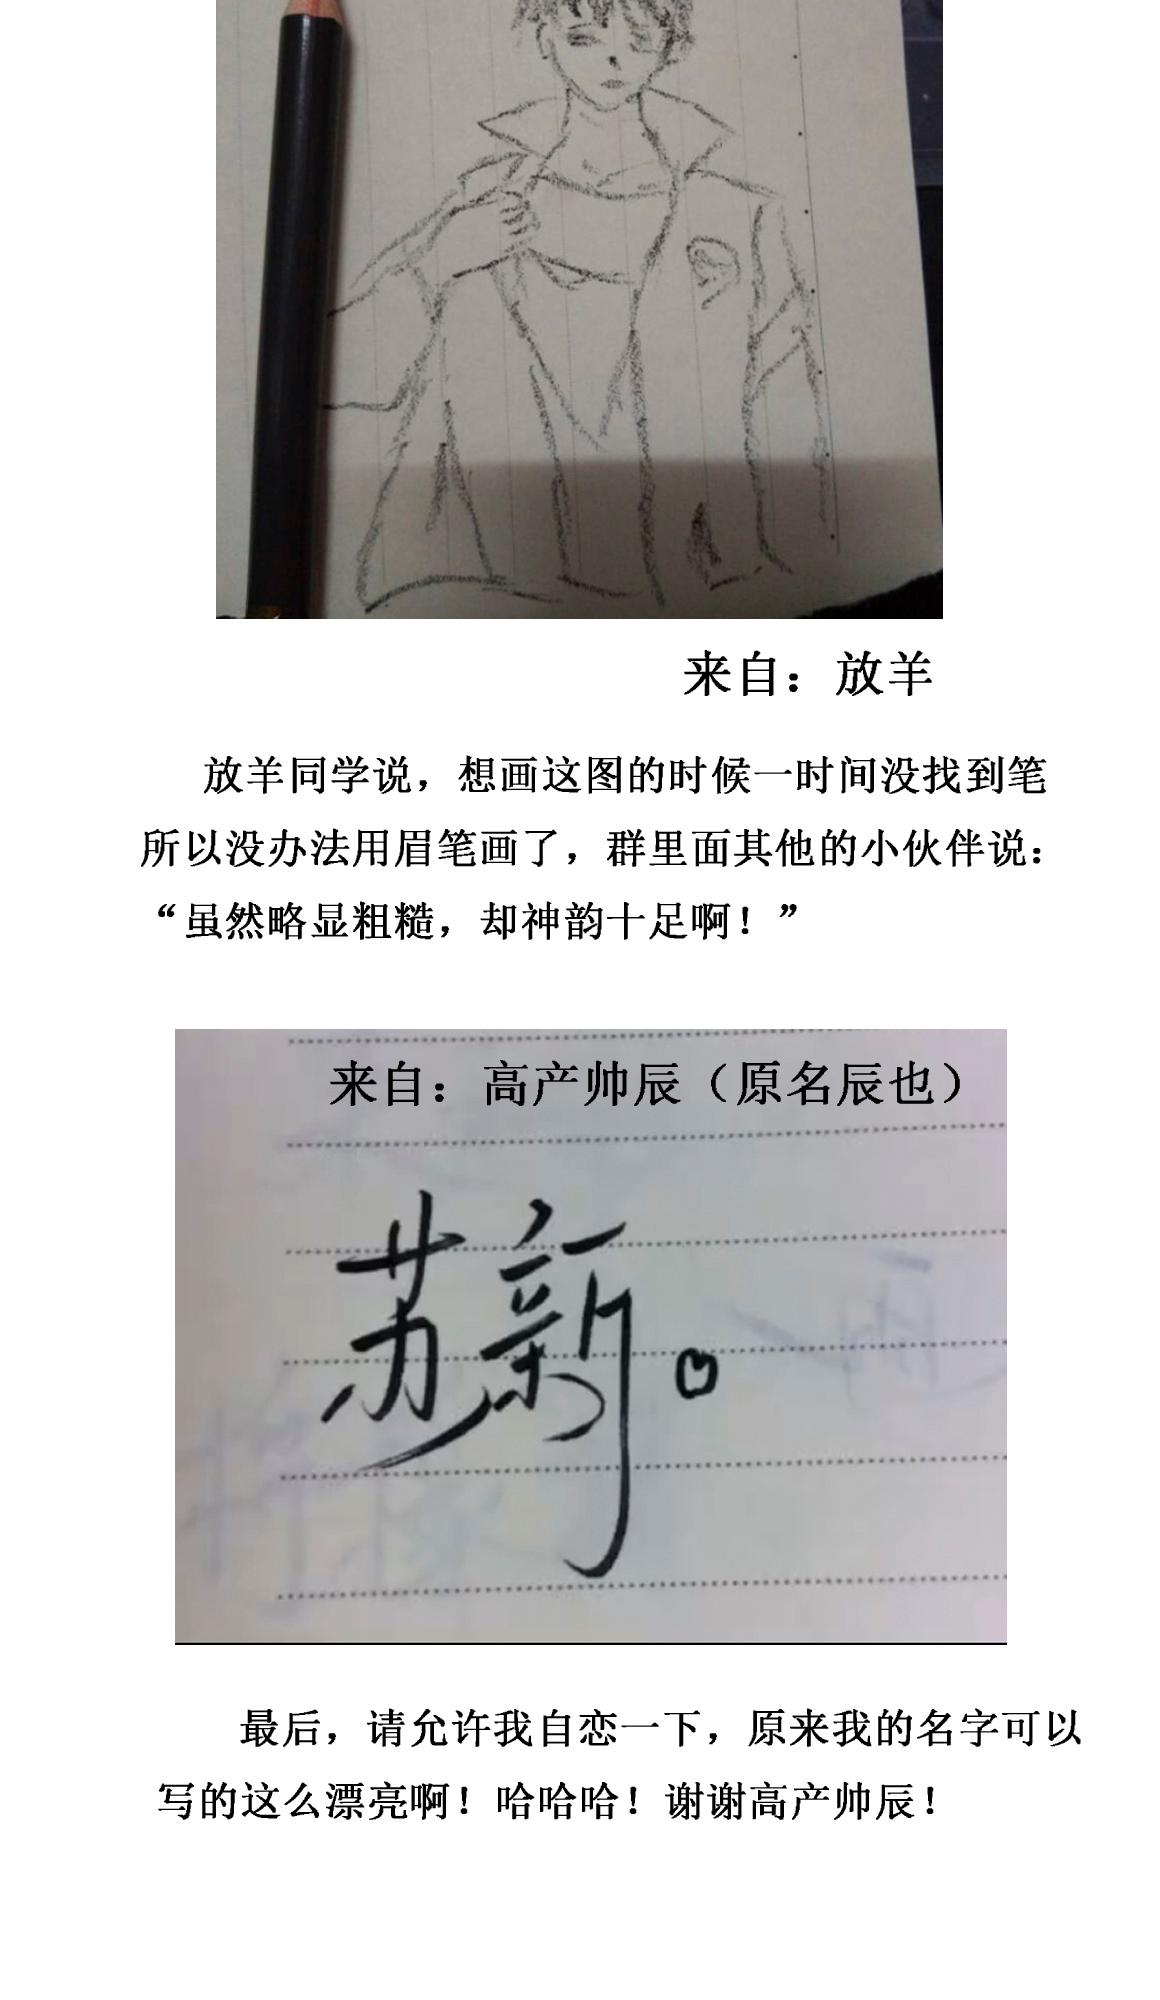 来自：放羊
放羊同学说，想画这图的时候一时间没找到笔
所以没办法用眉笔画了，群里面其他的小伙伴说：
“虽然略显粗糙，却神韵十足啊！”
来自：高产帅辰（原名辰也）
苏新。
最后，请允许我自恋一下，原来我的名字可以
写的这么漂亮啊！哈哈哈！谢谢高产帅辰！